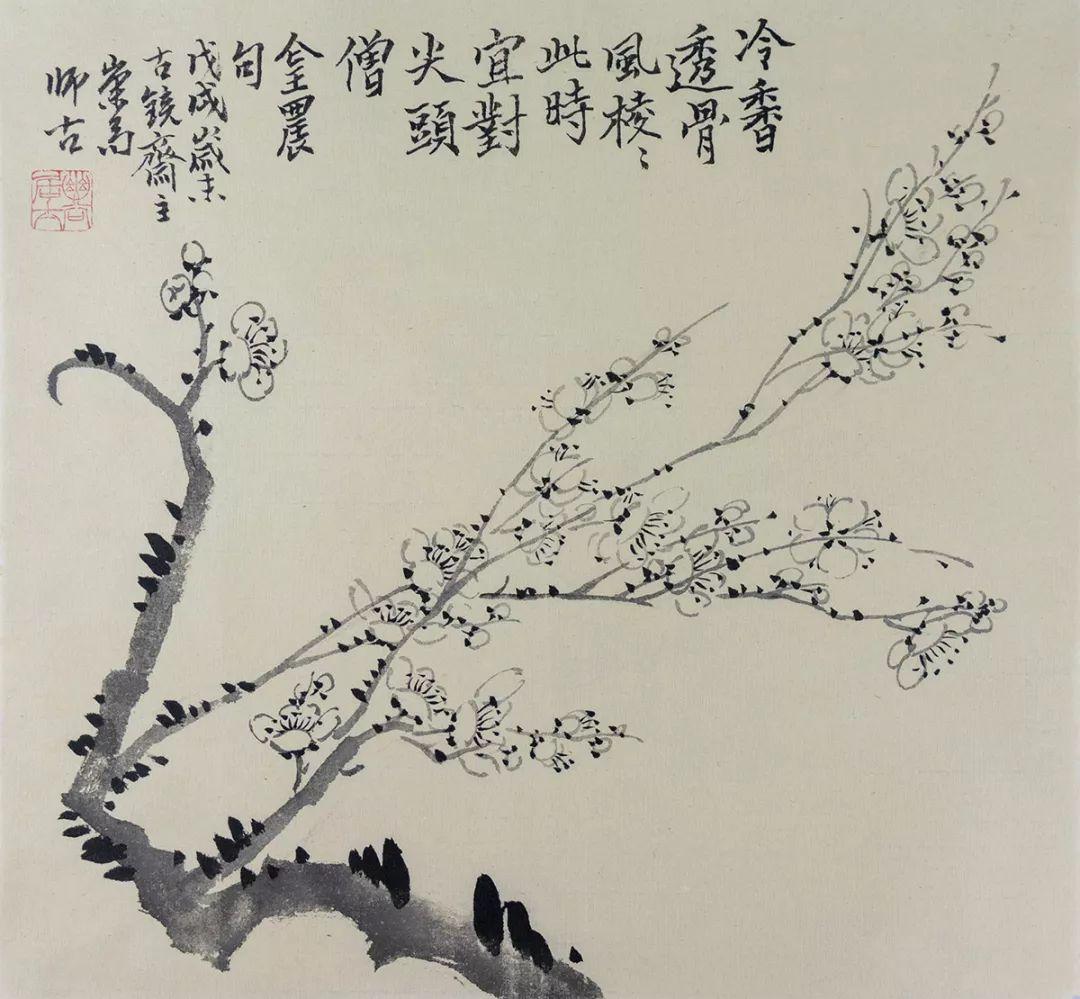 冷香
透骨
風棱〻
此時
宜對
尖頭
僧
金農
句
戊戌歲末
古鏡齋主
崇馬
師古